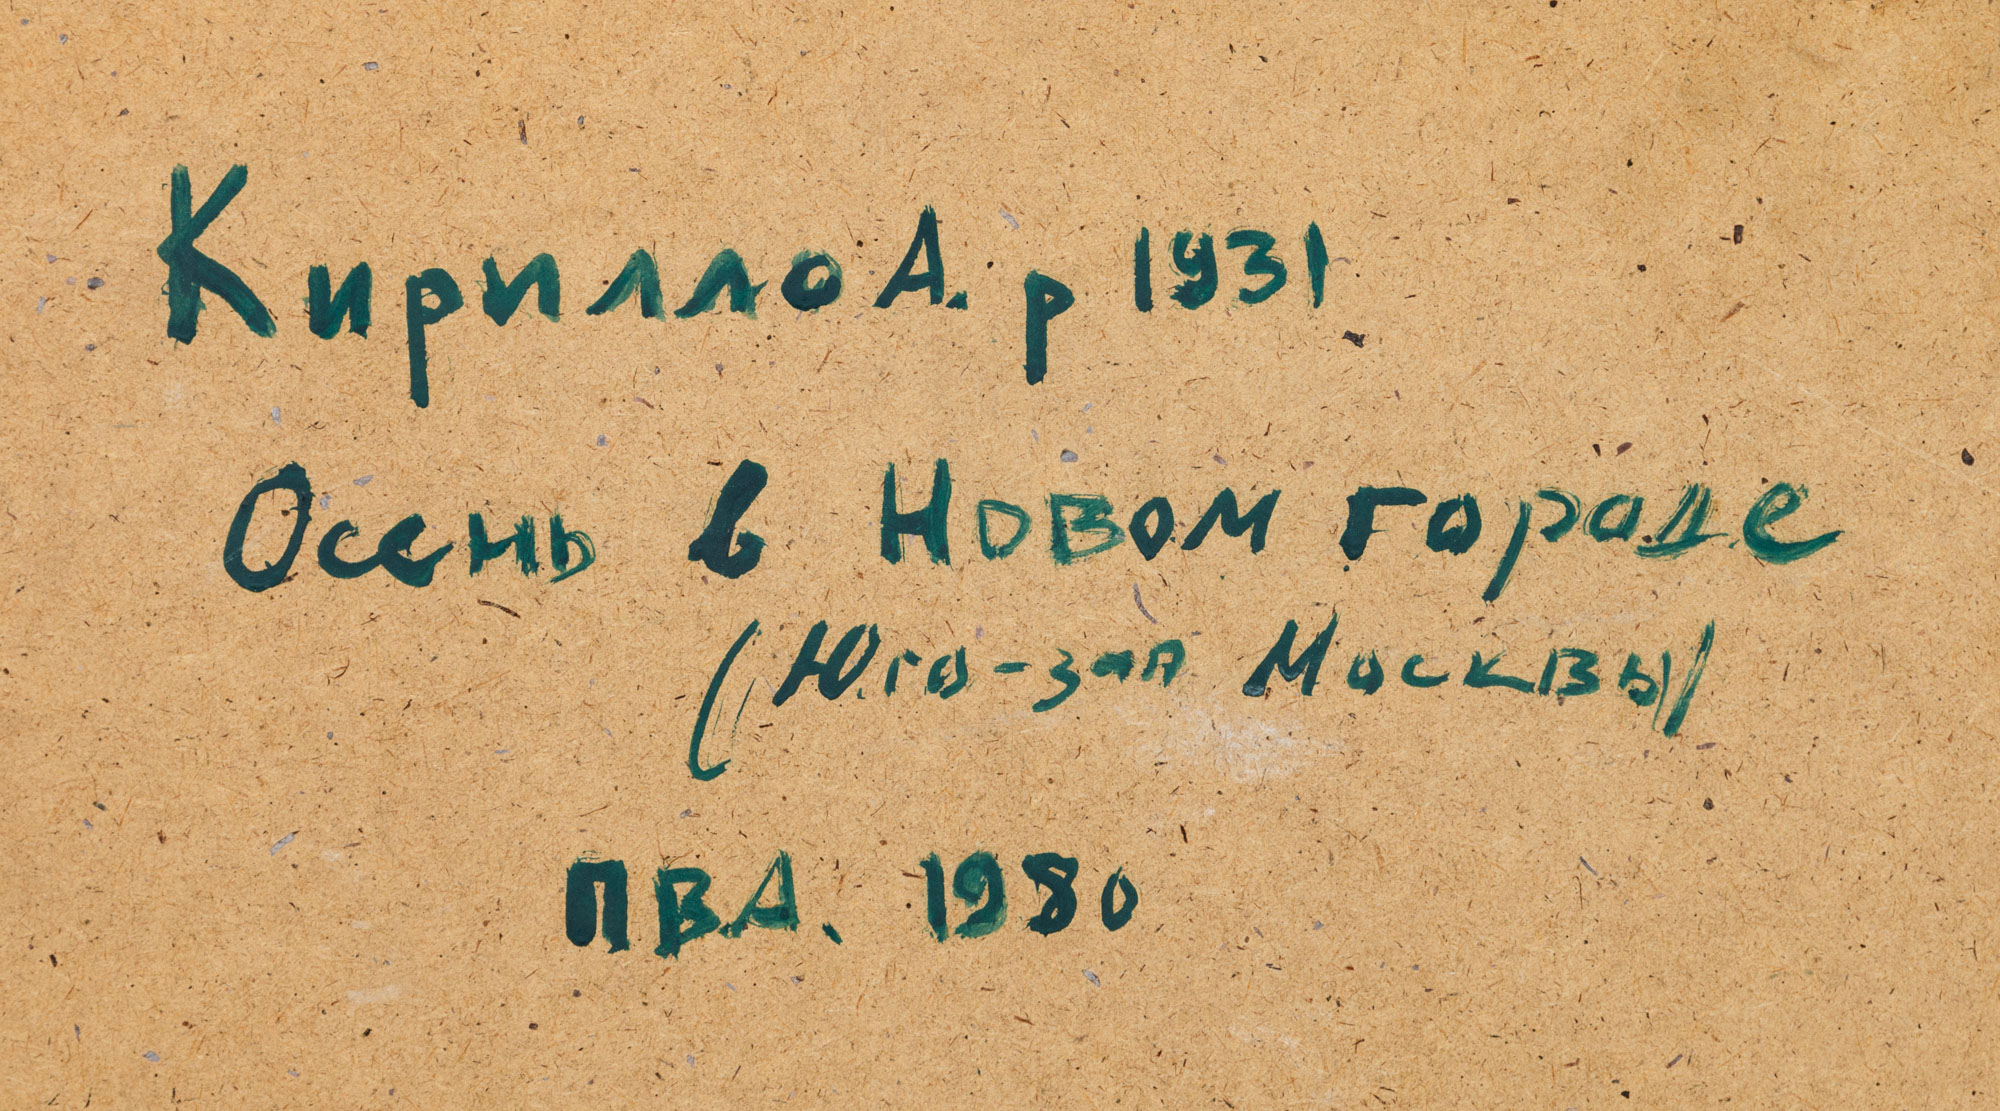 Кирилло А. р 1931
Осень в Новом городе
(Юго-зап Москвы)
ПВА. 1980